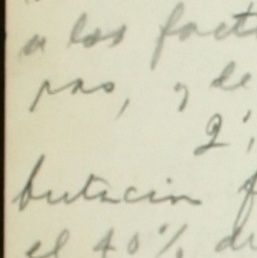 a los fact
ras, y de
2',
butacion f
el 40% de